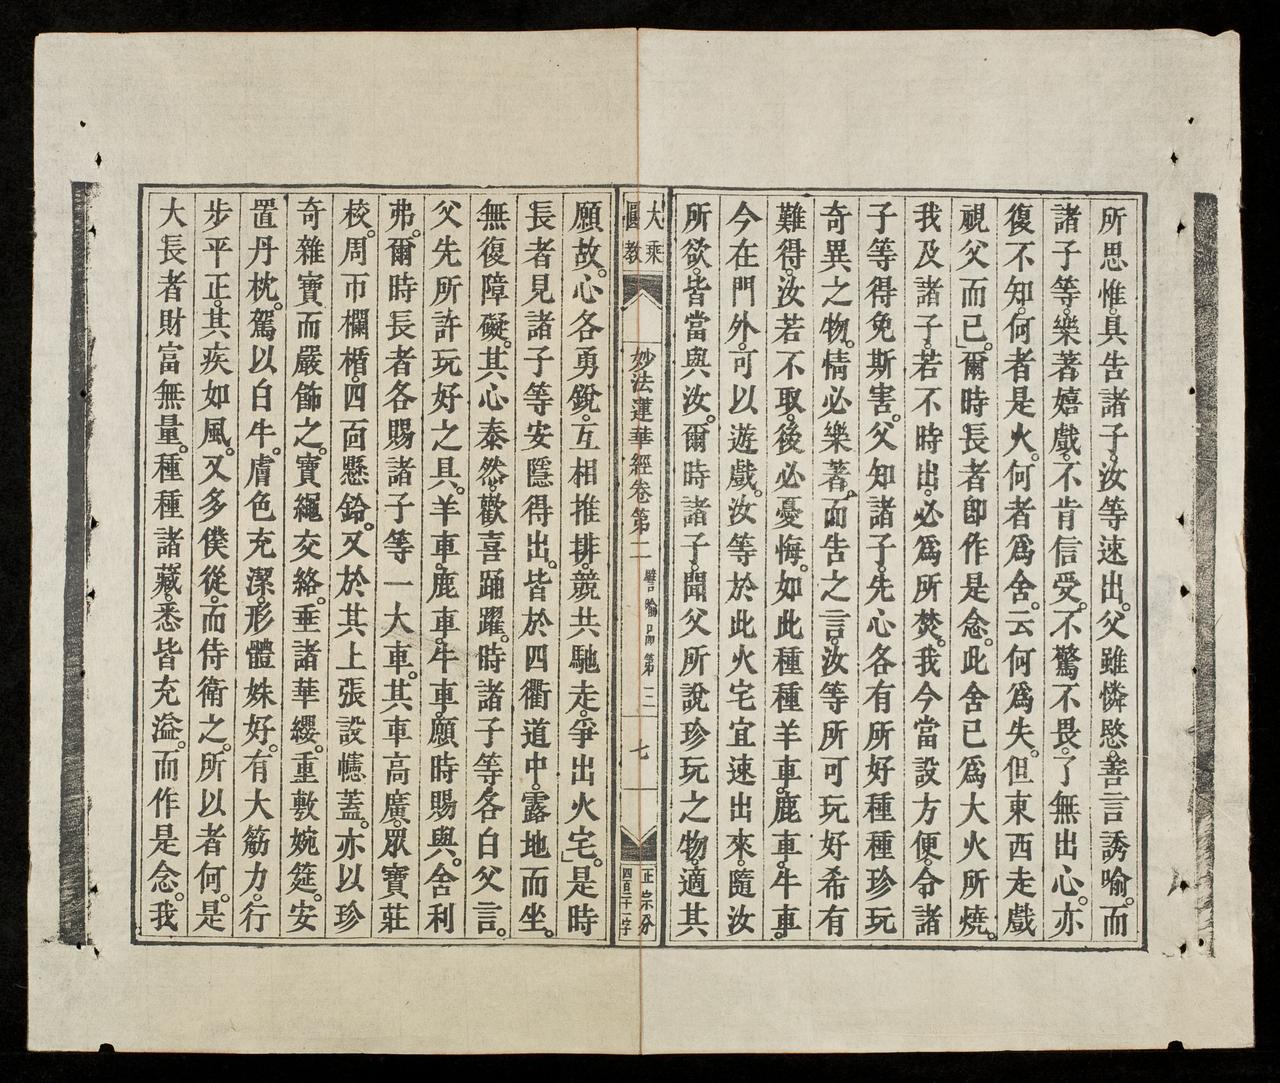 所思惟。具告諸子。汝等速出。父雖憐愍。善言誘喻。而
諸子等。樂著嬉戲。不肯信受。不驚不畏。了無出心。亦
復不知。何者是火。何者爲舍。云何爲失。但東西走戲
視父而已。」爾時長者。卽作是念。此舍已爲大火所燒。
我及諸子。若不時出。必爲所焚。我今當設方便。令諸
子等得免斯害。父知諸子。先心各有所好。種種珍玩
奇異之物。情必樂著。而告之言。汝等所可玩好。希有
難得。汝若不取。後必憂悔。如此種種羊車。鹿車。牛車。
今在門外。可以遊戲。汝等於此火宅宜速出來。隨汝
所欲。皆當與汝。爾時諸子。聞父所說珍玩之物。適其
大乘
圓教
妙法蓮華經卷第二
譬喻品第三
七
正宗分
願故。心各勇銳。互相推排。競共馳走。爭出火宅。」是時
長者見諸子等安隱得出。皆於四衢道中。露地而坐。
無復障礙。其心泰然。歡喜踊躍。時諸子等。各白父言。
父先所許玩好之具。羊車。鹿車。牛車。願時賜與。舍利
弗。爾時長者各賜諸子等一大車。其車高廣。眾寶莊
校。周帀欄楯。四面懸鈴。又於其上張設幰蓋。亦以珍
奇雜寶而嚴飾之。寶繩交絡。垂諸華纓。重敷婉筵。安
置丹枕。駕以白牛。膚色充潔。形體姝好。有大筋力。行
步平正。其疾如風。又多僕從。而侍衛之。所以者何。是
大長者財富無量。種種諸藏。悉皆充溢。而作是念。我